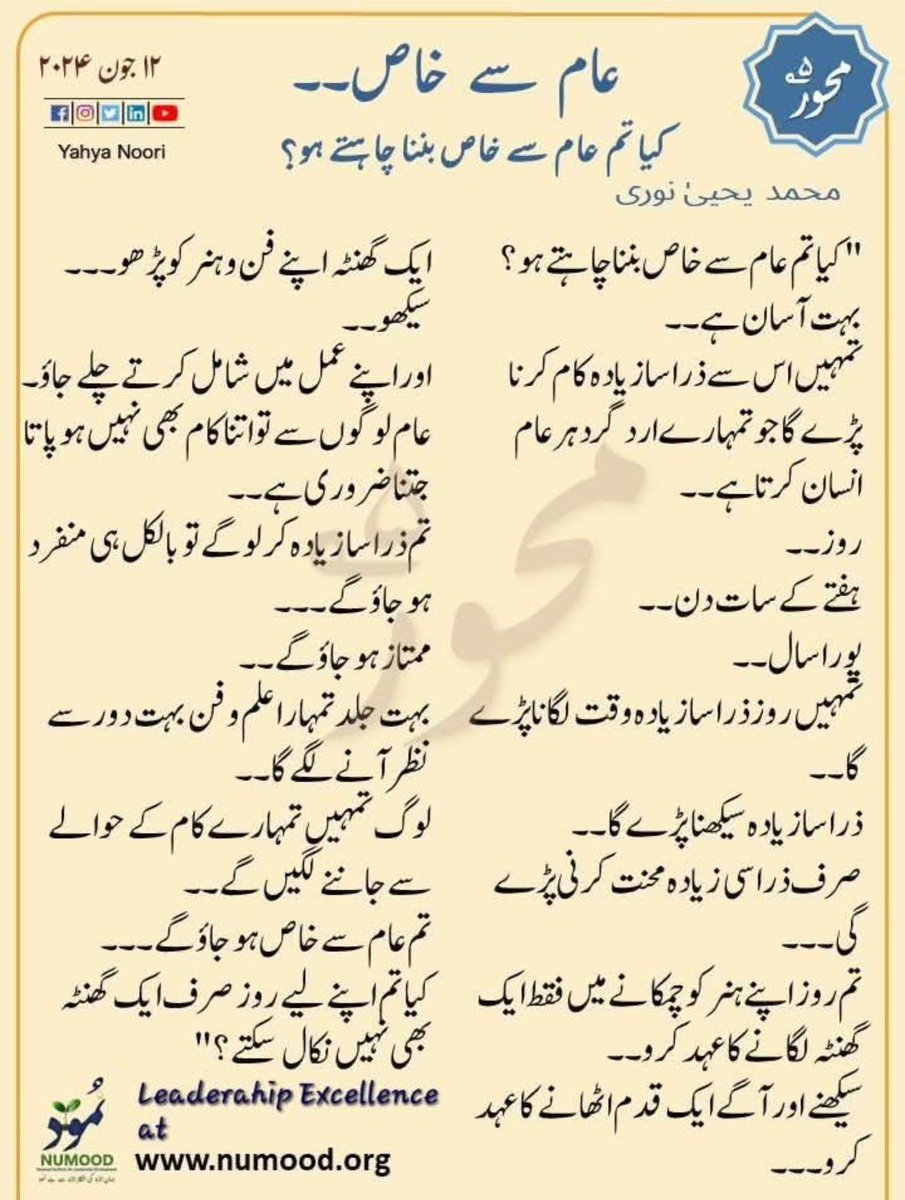 محور
۱۲ جون ۲۰۲۴
Yahya Noori
عام سے خاص۔۔
کیا تم عام سے خاص بننا چاہتے ہو؟
محمد یحییٰ نوری
"کیا تم عام سے خاص بننا چاہتے ہو؟
بہت آسان ہے۔۔
تمہیں اس سے ذرا سا زیادہ کام کرنا
پڑے گا جو تمہارے ارد گرد ہر عام
انسان کرتا ہے۔۔
روز۔۔
ہفتے کے سات دن۔۔
پورا سال۔۔
تمہیں روز ذرا سا زیادہ وقت لگانا پڑے
گا۔۔
ذرا سا زیادہ سیکھنا پڑے گا۔۔
صرف ذرا سی زیادہ محنت کرنی پڑے
گی۔۔۔
تم روز اپنے ہنر کو چمکانے میں فقط ایک
گھنٹہ لگانے کا عہد کرو۔۔
سیکھنے اور آگے ایک قدم اٹھانے کا عہد
کرو۔۔۔
ایک گھنٹہ اپنے فن و ہنر کو پڑھو۔۔۔
سیکھو۔۔
اور اپنے عمل میں شامل کرتے چلے جاؤ۔
عام لوگوں سے تو اتنا کام بھی نہیں ہو پاتا
جتنا ضروری ہے۔۔
تم ذرا سا زیادہ کر لو گے تو بالکل ہی منفرد
ہو جاؤ گے۔۔۔
ممتاز ہو جاؤ گے۔۔
بہت جلد تمہارا علم و فن بہت دور سے
نظر آنے لگے گا۔۔
لوگ تمہیں تمہارے کام کے حوالے
سے جاننے لگیں گے۔۔
تم عام سے خاص ہو جاؤ گے۔۔۔۔
کیا تم اپنے لیے روز صرف ایک گھنٹہ
بھی نہیں نکال سکتے؟"
نُمود
NUMOOD
Leaderahip Excellence
at
www.numood.org